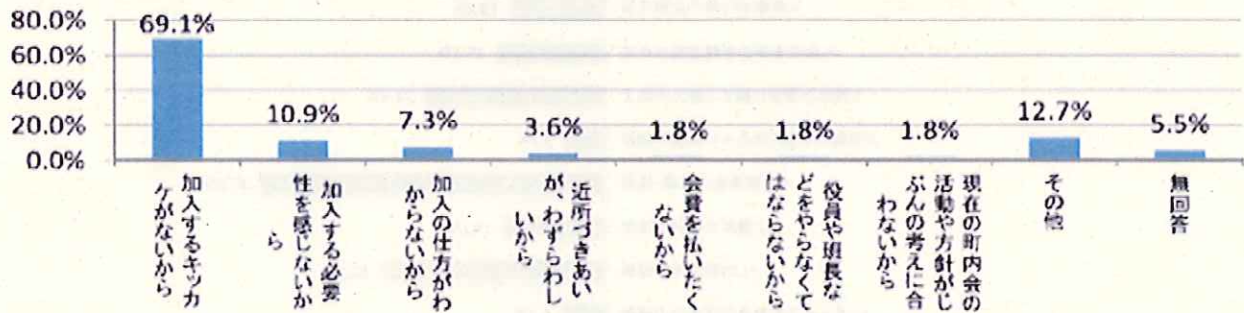 80.0%
60.0%
40.0%
20.0%
0.0%
69.1%
10.9%
7.3%
3.6%
1.8%
1.8%
1.8%
12.7%
5.5%
加入するキッカ
ケがないから
加入する必要
性を感じないか
ら
加入の仕方がわ
からないから
近所づきあい
が、わずらわし
いから
会費を払いたく
ないから
役員や班長な
どをやらなくて
はならないから
現在の町内会の
活動や方針がじ
ぶんの考えに合
わないから
その他
無回答